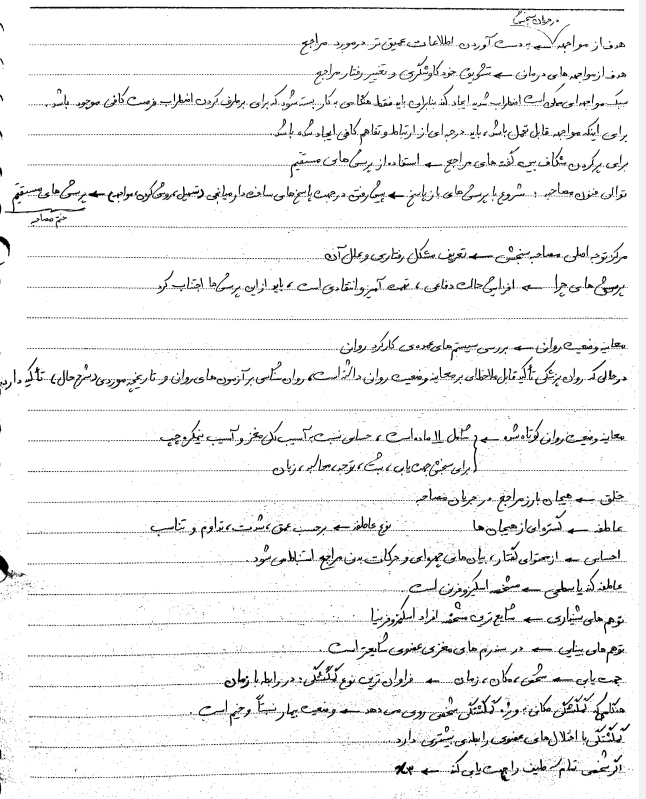 در جریان سنجش
هدف از مواجهه ← به دست آوردن اطلاعات عمیق تر در مورد مراجع
هدف از مواجهه های درمانی ← تشویق خودکاوشگری و تغییر رفتار مراجع
سبک مواجهه ای ممکن است اضطراب شدید ایجاد کند بنابراین باید فقط هنگامی به کار بسته شود که برای برطرف کردن اضطراب فرصت کافی موجود باشد.
برای اینکه مواجهه قابل تحمل باشد، باید درجه ای از ارتباط و تفاهم کافی ایجاد شده باشد.
برای پر کردن شکاف بین گفته های مراجع ← استفاده از پرسش های مستقیم
توالی فنون مصاحبه : شروع با پرسش های باز پاسخ ← پیشرفت در جهت پاسخ های ساخت دار میانی (تسهیل، روشن کردن، مواجهه) ← پرسش های مستقیم
ختم مصاحبه
مرکز توجه اصلی مصاحبه سنجشی ← تعریف مشکل رفتاری و علل آن
پرسش های چرا ← افزایش حالت دفاعی ، تهمت آمیز و انتقادی است ، باید از این پرسش ها اجتناب کرد
معاینه وضعیت روانی ← بررسی سیستم های عمده ی کارکرد روانی
در حالی که روان پزشکی تأکید قابل ملاحظه ای بر معاینه وضعیت روانی داشته است، روان شناسی بر آزمون های روانی و تاریخچه موردی (شرح حال) تأکید دارد
معاینه وضعیت روانی کوتاه شده ← { شامل 11 ماده است ، حساس نسبت به آسیب کل مغز و آسیب نیمکره چپ
برای سنجش جهت یابی ، ثبت ، توجه، محاسبه ، زبان
خلق ← هیجان بارز مراجع در جریان مصاحبه
عاطفه ← گستره ای از هیجان ها نوع عاطفه ← برحسب عمق ، شدت ، تداوم و تناسب
احساس ← از محتوای گفتار ، بیان های چهره ای و حرکات بدنی مراجع استنباط می شود.
عاطفه کند یا سطحی ← مشخصه اسکیزوفرنی است
توهم های شنیداری ← شایع ترین مشخصه افراد اسکیزوفرنیا
توهم های بینایی ← در سندرم های مغزی عضوی شایعتر است.
جهت یابی ← شخص، مکان ، زمان ← فراوان ترین نوع گمگشتگی : در رابطه با زمان
هنگامی که گمگشتگی مکانی به ویژه گمگشتگی شخصی روی می دهد ← وضعیت بیمار نسبتاً وخیم است.
گمگشتگی با اختلال های عضوی رابطه ی بیشتری دارد
اگر شخصی تمام سه طیف را جهت یابی کند ← ×۳